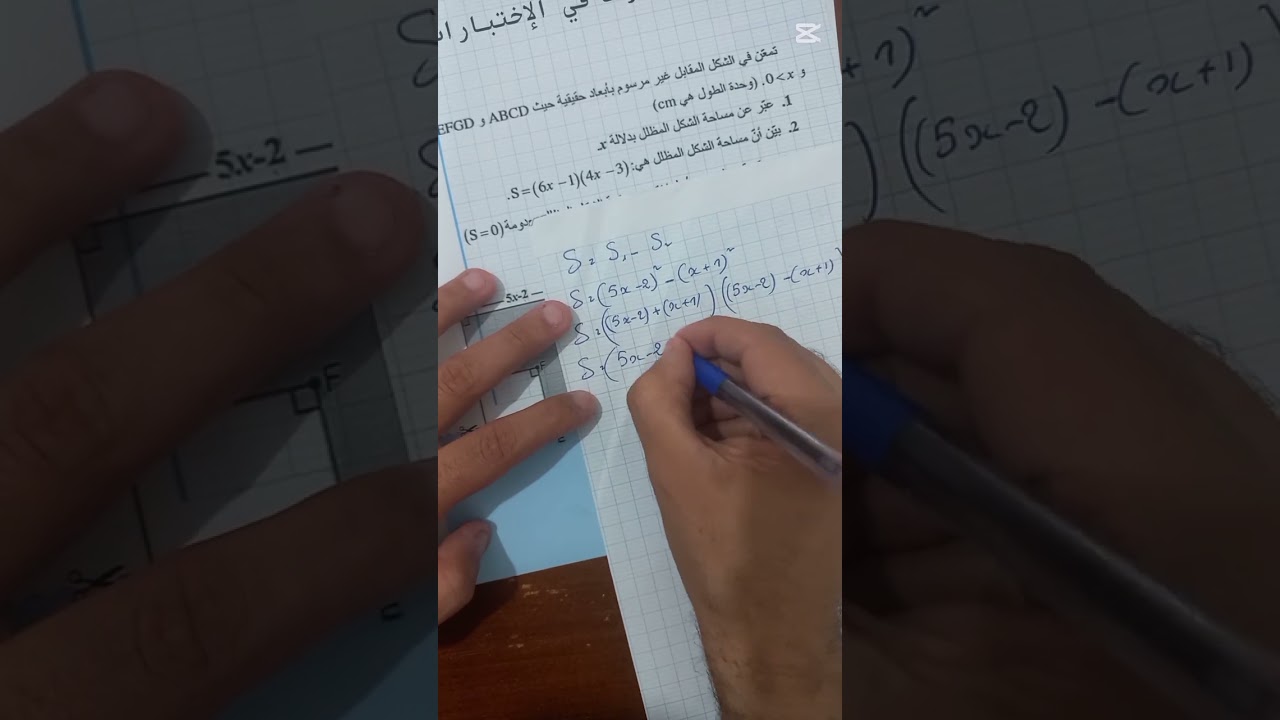 في الإختبارات
تمعّن في الشكل المقابل غير مرسوم بأبعاد حقيقية حيث ABCD و EFGD
و 0<x. (وحدة الطول هي cm)
1. عبّر عن مساحة الشكل المظلل بدلالة x.
2. بيّن أنّ مساحة الشكل المظلل هي: S=(6x−1)(4x−3).
(S=0)
S = S₁ − S₂
S = (5x−2)² − (x+1)²
S = ((5x−2)+(x+1))((5x−2)−(x+1))
S = (5x−2
5x-2
F